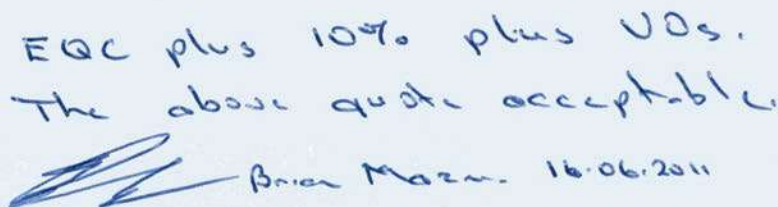 EQC plus 10% plus VOs.
The above quote acceptable.
Brian 16.06.2011